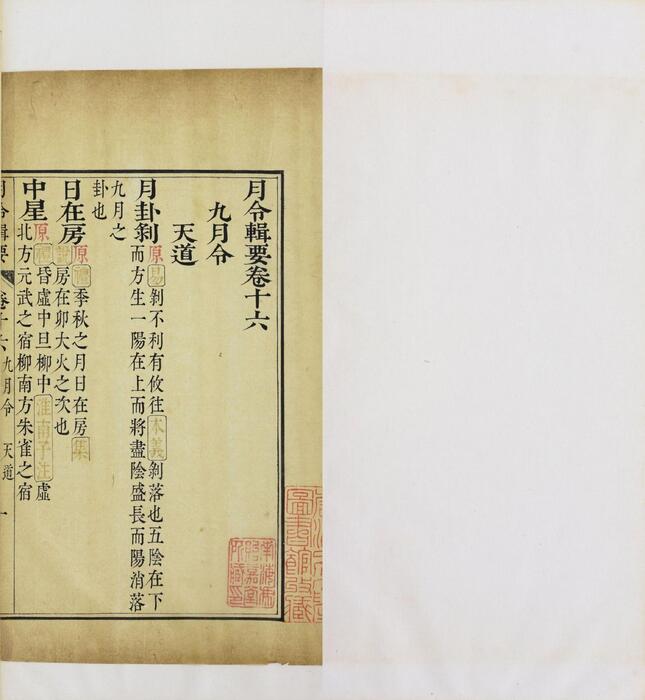 月令輯要卷十六
九月令
天道
月卦剝原易剝不利有攸往本義剝落也五陰在下
而方生一陽在上而將盡陰盛長而陽消落
九月之
卦也
日在房原禮季秋之月日在房集
說房在卯大火之次也
中星原禮昏虛中旦柳中淮南子注虛
北方元武之宿柳南方朱雀之宿
月令輯要 卷十六 九月令 天道 一